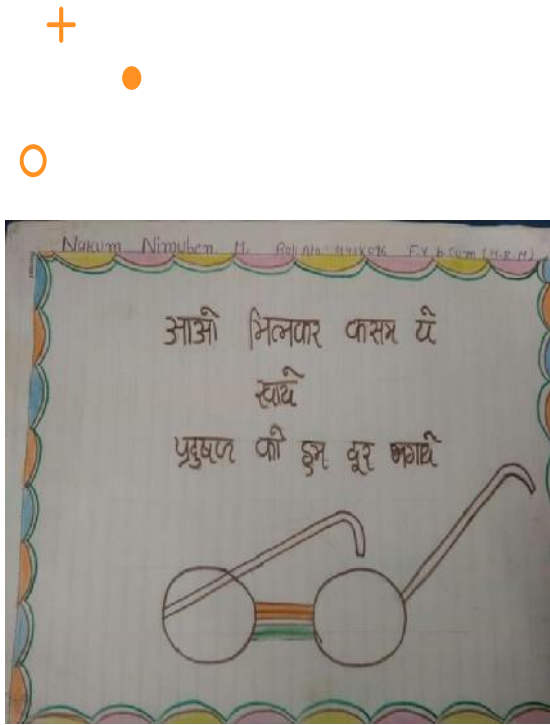 Nakum Nimuben M. Roll No. F.Y. b.com (M.R.M)
आओ मिलकर कसम ये
खाये
प्रदुषण को हम दूर भगाये